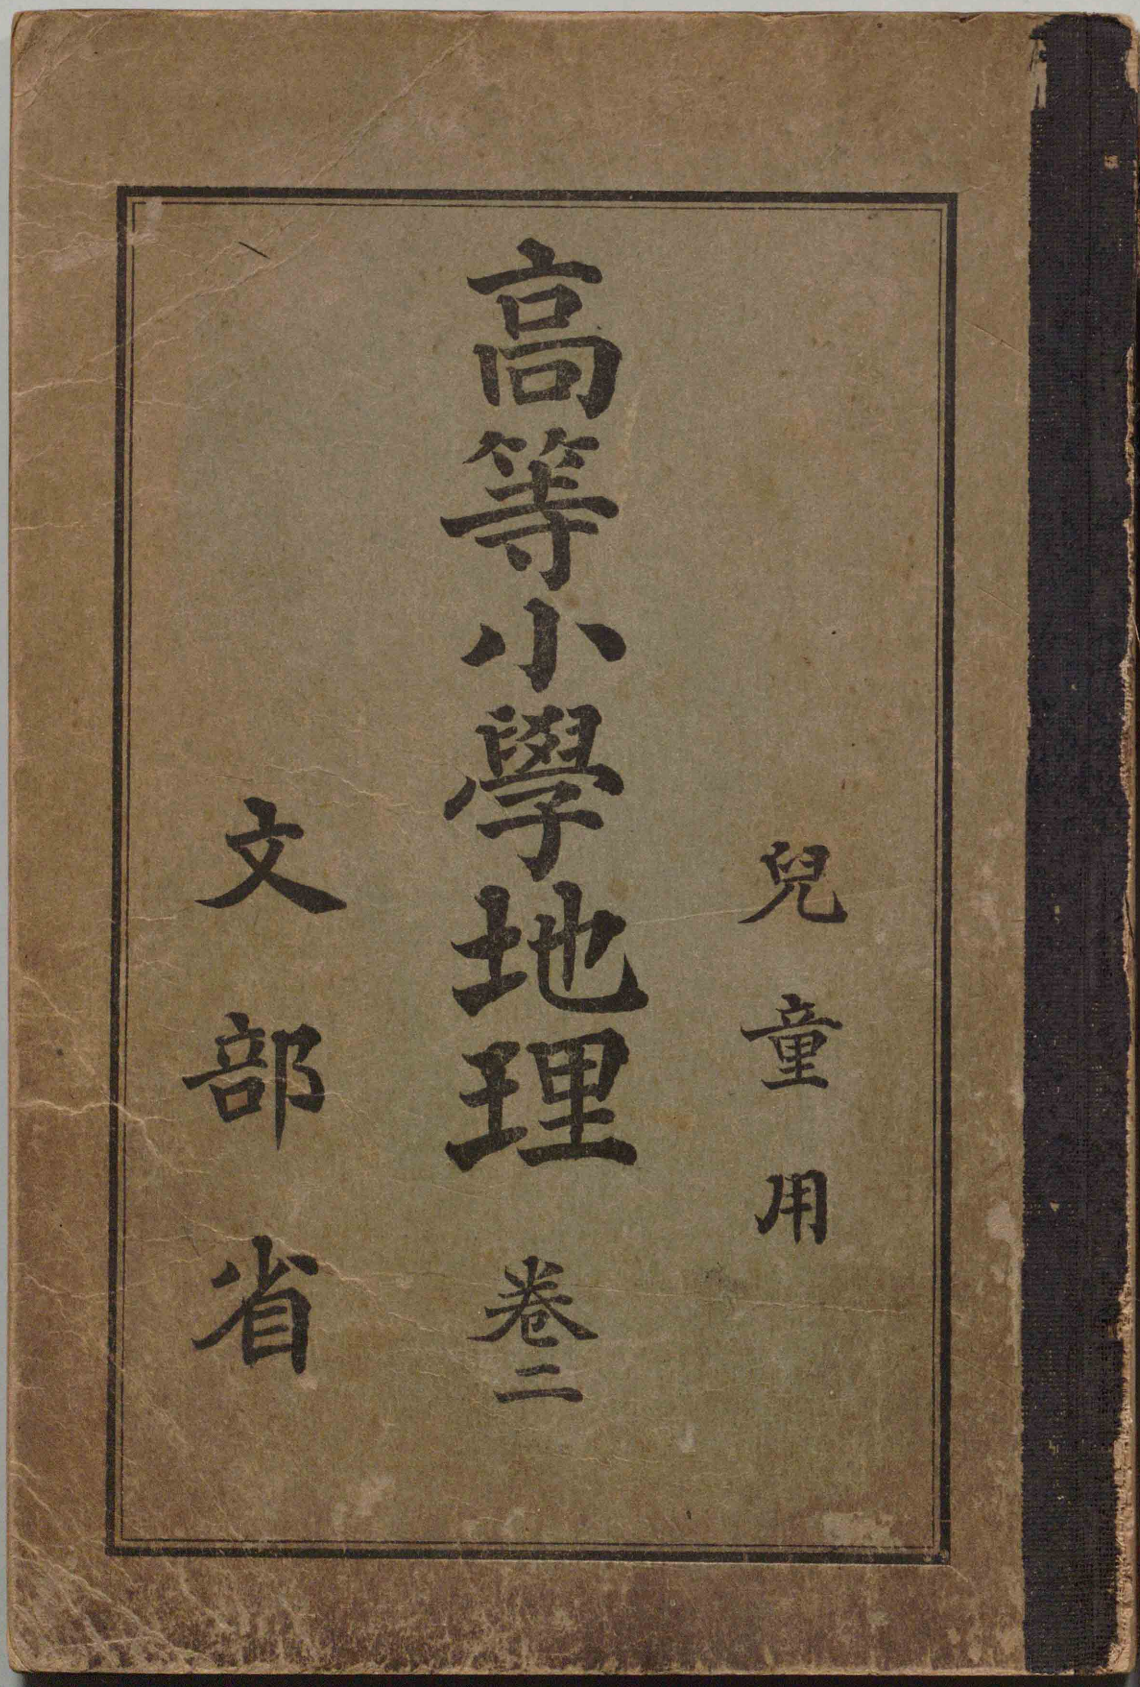 兒童用
高等小學地理 卷二
文部省